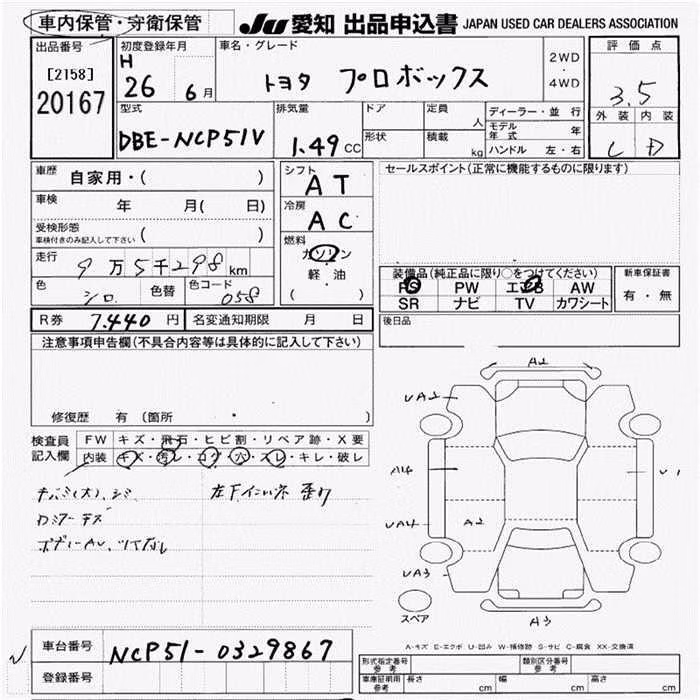 車内保管・守衛保管 JU 愛知 出品申込書 JAPAN USED CAR DEALERS ASSOCIATION
出品番号 初度登録年月 車名・グレード 2WD・4WD 評価点
[2158] H 26 6月 トヨタ プロボックス 3.5
20167 型式 排気量 ドア 定員 人 ディーラー・並行 外装 内装
DBE-NCP51V 1.49 CC 形状 積載 kg モデル年式 年 C D
ハンドル 左・右
車歴 自家用・( ) シフト AT セールスポイント(正常に機能するものに限ります)
車検 年 月( 日) 冷房 AC
受検形態 車検付きのみ記入して下さい ( ) 燃料 ガソリン
走行 9万5千298 km 軽油 装備品(純正品に限り○をつけてください) 新車保証書
色 シロ 色替 色コード 058 ( ) PS PW エアB AW 有・無
SR ナビ TV カワシート
R券 7,440 円 名変通知期限 月 日 後日品
注意事項申告欄(不具合内容等は具体的に記入して下さい)
修復歴 有 (箇所
検査員記入欄 FW キズ・飛石・ヒビ割・リペア跡・X要
内装 キズ・汚レ・コゲ・穴・スレ・キレ・破レ
A2
UA2
A14
U1
UA4 A2
UA3
スペア
A3
A-キズ E-エクボ U-凹み W-補修跡 S-サビ C-腐食 XX-交換済
車台番号 NCP51-0329867
登録番号
形式指定番号 参考 類別区分番号 参考
車庫証明用 参考 長さ cm 幅 cm 高さ cm